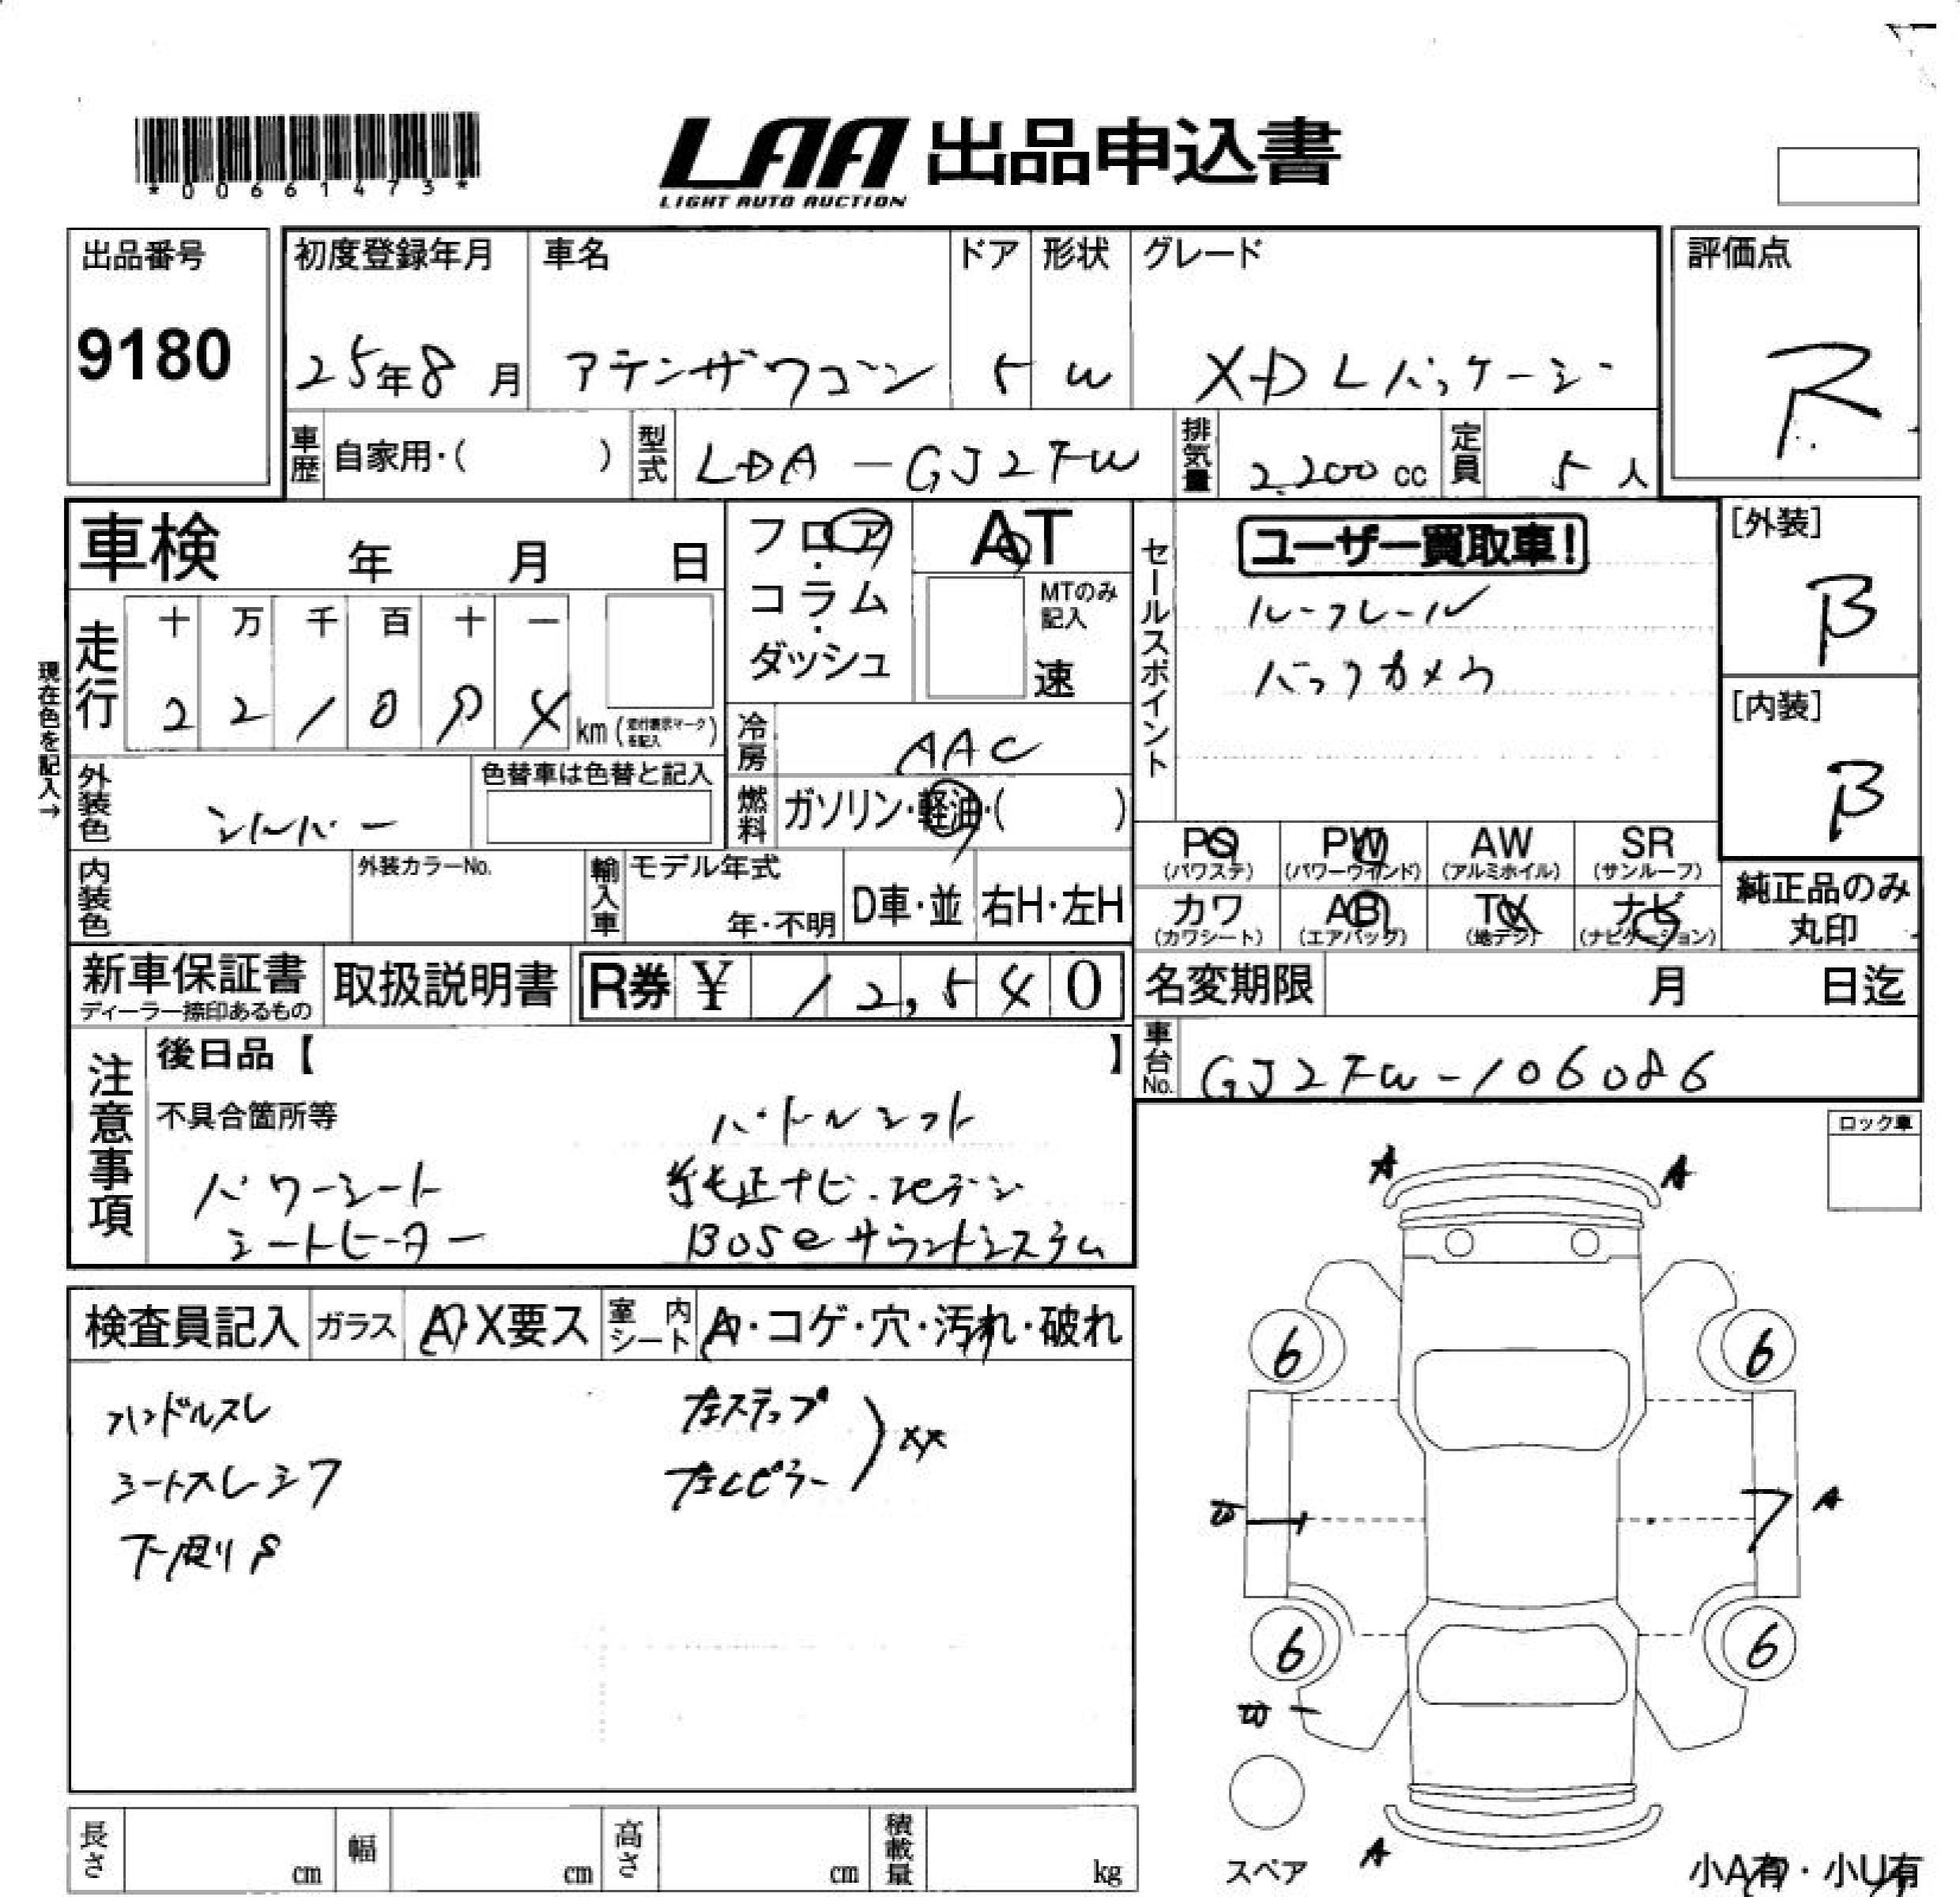 *00661473*
LAA 出品申込書
LIGHT AUTO AUCTION
出品番号
9180
初度登録年月
25年8月
車名
アテンザワゴン
ドア
5
形状
W
グレード
XD Lパッケージ
評価点
R
車歴 自家用・( )
型式 LDA-GJ2FW
排気量 2,200 cc
定員 5人
車検 年 月 日
フロア・コラム・ダッシュ
AT
MTのみ記入
速
セールスポイント
ユーザー買取車!
ルーフレール
バックカメラ
[外装]
B
[内装]
B
現在色を記入→
走行
十 万 千 百 十 一
2 2 1 0 9 4 km (走行表示マークを記入)
冷房 AAC
燃料 ガソリン・軽油・( )
外装色 シルバー
色替車は色替と記入
内装色
外装カラーNo.
輸入車
モデル年式
年・不明
D車・並
右H・左H
PS (パワステ)
PW (パワーウインド)
AW (アルミホイル)
SR (サンルーフ)
カワ (カワシート)
AB (エアバッグ)
TV (地デジ)
ナビ (ナビゲーション)
純正品のみ
丸印
新車保証書
ディーラー捺印あるもの
取扱説明書
R券 ¥ 12,540
名変期限 月 日迄
車台No. GJ2FW-106086
注意事項
後日品【 】
不具合箇所等
パドルシフト
パワーシート
純正ナビ・地デジ
シートヒーター
BOSEサウンドシステム
ロック車
検査員記入
ガラス A・X要ス
室内シート A・コゲ・穴・汚れ・破れ
ハンドルスレ
シートスレシワ
下廻りS
左ステップ
左Cピラー
XX
A A
6 6
W A
6 6
W
スペア
A
小A有・小U有
長さ cm
幅 cm
高さ cm
積載量 kg